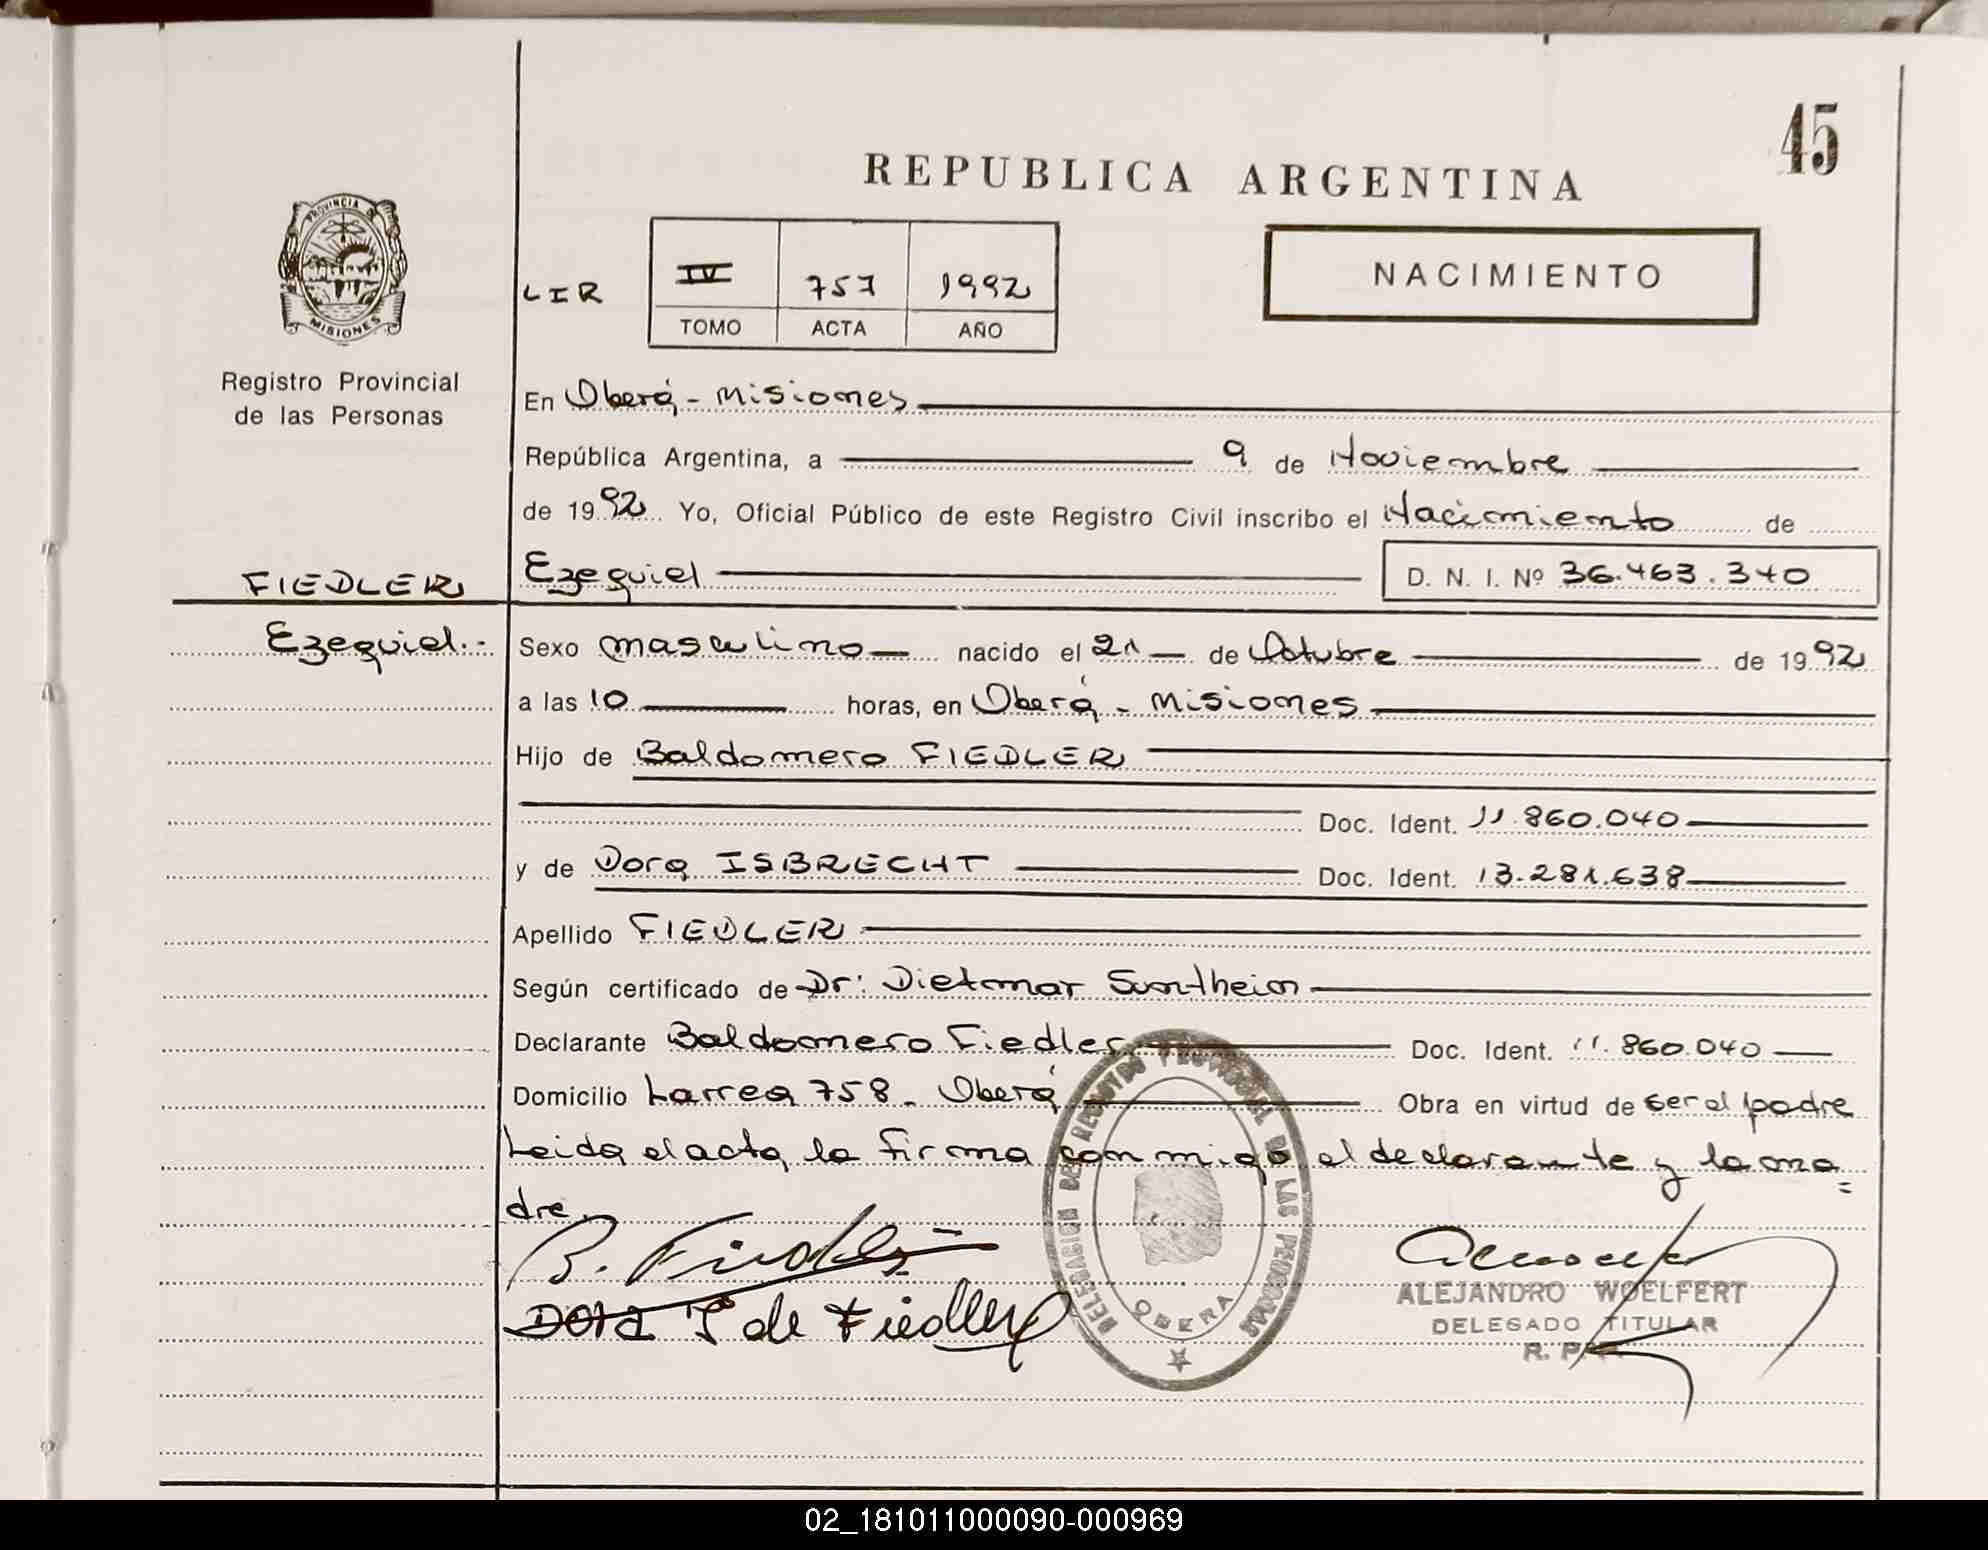 45
REPUBLICA ARGENTINA
PROVINCIA DE
MISIONES
NACIMIENTO
LIR
IV 757 1992
TOMO ACTA AÑO
Registro Provincial
de las Personas
En Oberá - Misiones
República Argentina, a 9 de Noviembre
de 1992 Yo, Oficial Público de este Registro Civil inscribo el Nacimiento de
FIEDLER Ezequiel D. N. I. Nº 36.463.340
Ezequiel.- Sexo masculino nacido el 21 de Octubre de 1992
a las 10 horas, en Oberá - Misiones
Hijo de Baldomero FIEDLER
Doc. Ident. 11.860.040
y de Dora ISBRECHT Doc. Ident. 13.281.638
Apellido FIEDLER
Según certificado de Dr: Dietmar Suntheim
Declarante Baldomero Fiedler Doc. Ident. 11.860.040
Domicilio Larrea 758 - Oberá Obra en virtud de ser el padre
Leida el acta la firma conmigo el declarante y la ma=
dre.
B. Fiedler
Dora I de Fiedler
DELEGACION DEL REGISTRO PROVINCIAL DE LAS PERSONAS
OBERA
ALEJANDRO WOELFERT
DELEGADO TITULAR
R. P.
02_181011000090-000969